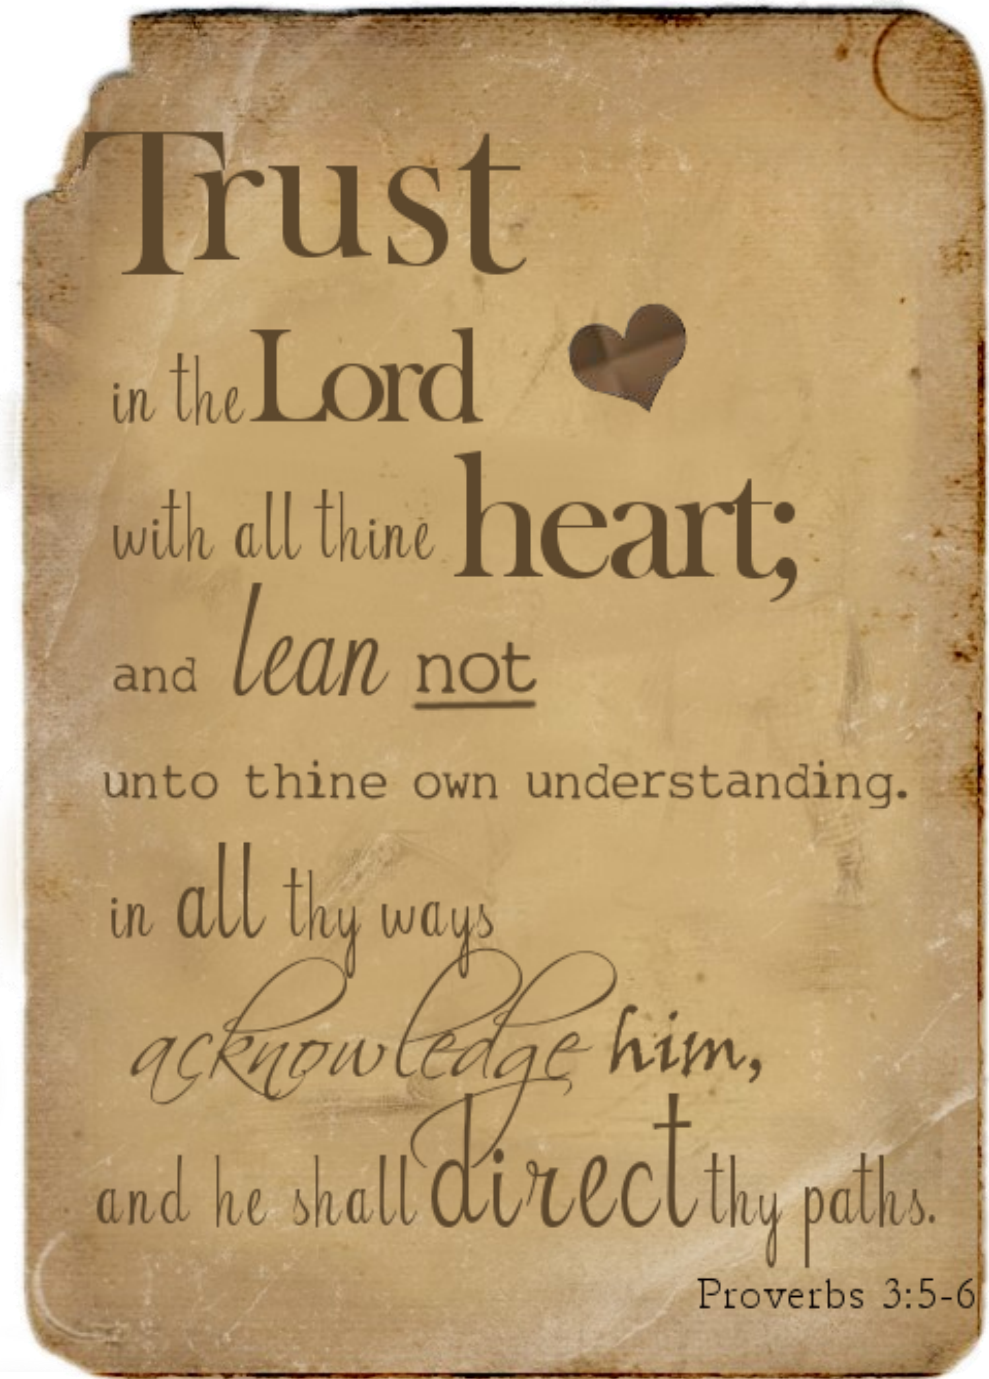 Trust
in the Lord
with all thine heart;
and lean not
unto thine own understanding.
in all thy ways
acknowledge him,
and he shall direct thy paths.
Proverbs 3:5-6